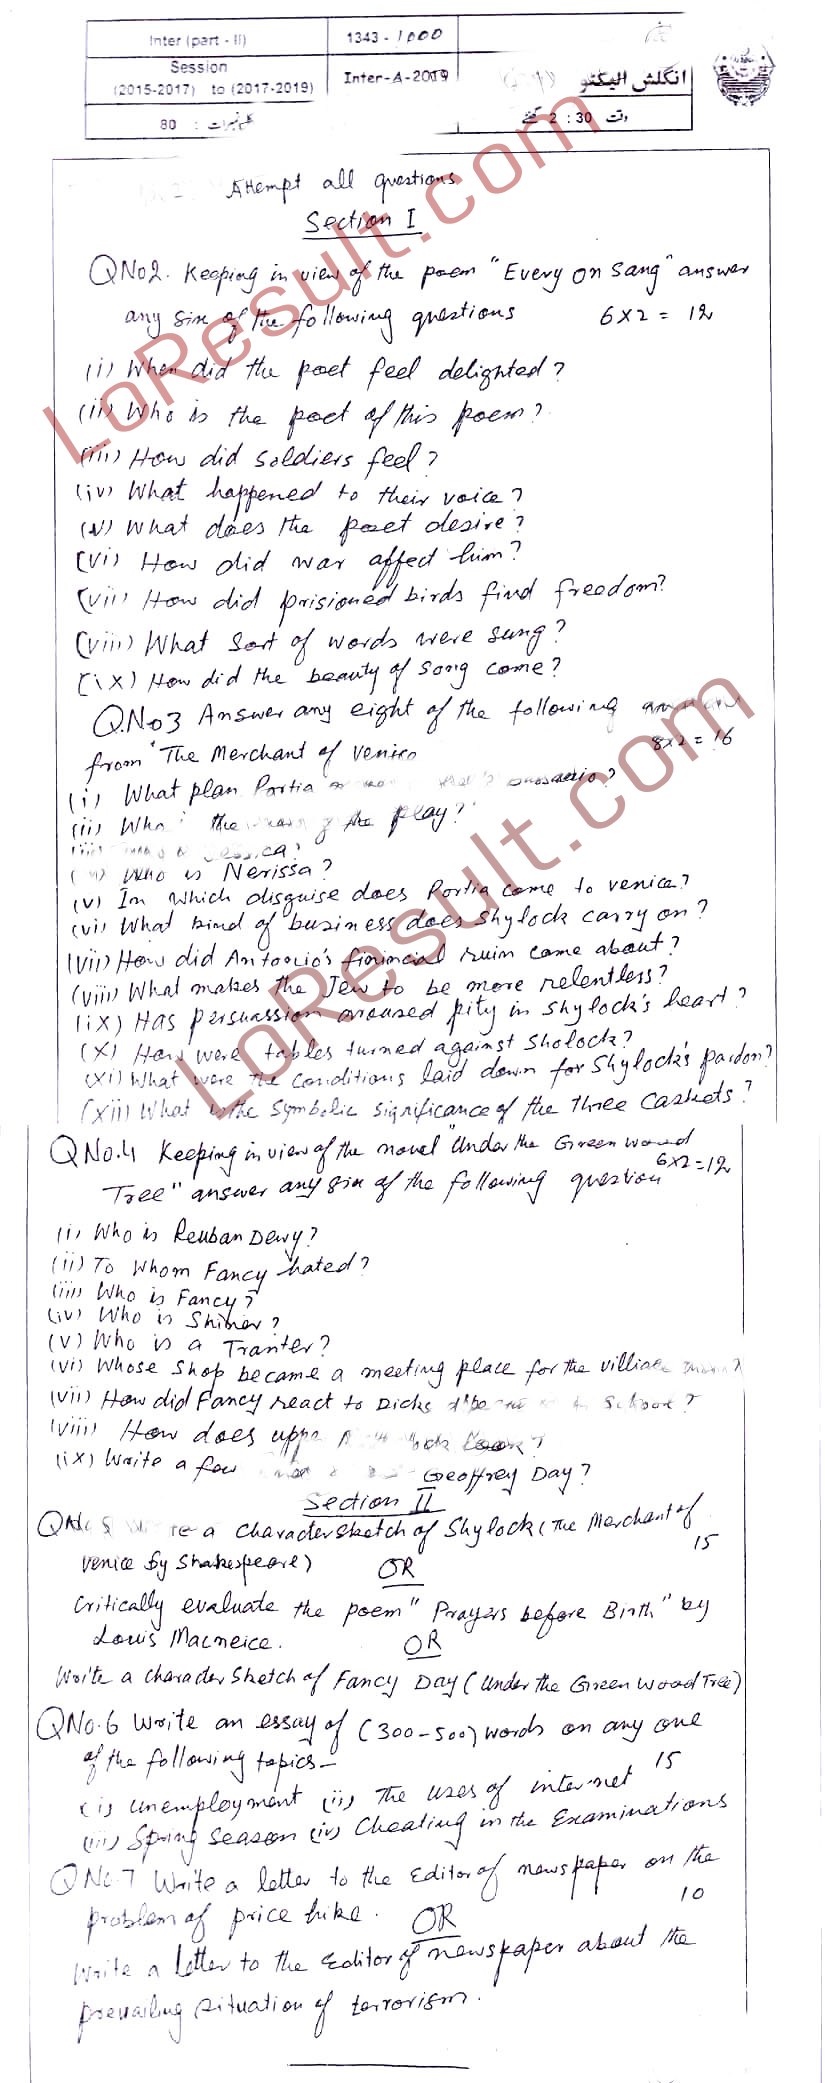 Inter (part - II)
1343 - 1000
Session
(2015-2017) to (2017-2019)
Inter-A-2019
انگلش الیکٹو
کل نمبرات : 80
وقت 2 : 30 گھنٹے
Attempt all questions
Section I
QNo2. Keeping in view of the poem "Every on Sang" answer
any six of the following questions 6x2 = 12
(i) When did the poet feel delighted?
(ii) Who is the poet of this poem?
(iii) How did soldiers feel?
(iv) What happened to their voice?
(v) What does the poet desire?
(vi) How did war affect him?
(vii) How did prisioned birds find freedom?
(viii) What Sort of words were sung?
(ix) How did the beauty of song come?
Q.No3 Answer any eight of the following
from "The Merchant of Venice 8x2 = 16
(i) What plan Portia
(ii) the the play?
Jessica?
Who is Nerissa?
(v) In which disguise does Portia come to venice?
(vi) What kind of business does Shylock carry on?
(vii) How did Antonio's finincial ruin come about?
(viii) What makes the Jew to be more relentless?
(ix) Has persuassion aroused pity in Shylock's heart?
(x) How were tables turned against Sholock?
(xi) What were the conditions laid down for Shylock's pardon?
(xii) What is the Symbolic significance of the three Caskets?
QNo.4 Keeping in view of the novel "Under the Green wood
Tree" answer any six of the following question 6x2=12
(i) Who is Reuban Dewy?
(ii) To Whom Fancy hated?
(iii) Who is Fancy?
(iv) Who is Shiner?
(v) Who is a Tranter?
(vi) Whose Shop became a meeting place for the
(vii) How did Fancy react to Dicks School?
(viii) How does look?
(ix) Write a few Geoffrey Day?
Section II
Write a character sketch of Shylock (The Merchant of
Venice by Shakespeare) 15
OR
Critically evaluate the poem "Prayers before Birth" by
Louis Macneice.
OR
Write a character Sketch of Fancy Day (Under the Green Wood Tree)
QNo.6 Write an essay of (300-500) words on any one
of the following topics- 15
(i) unemployment (ii) The uses of internet
(iii) Spring season (iv) Cheating in the Examinations
QNo.7 Write a letter to the Editor of newspaper on the
problem of price hike. 10
OR
Write a letter to the Editor of newspaper about the
prevailing situation of terrorism.
LoResult.com
LoResult.com